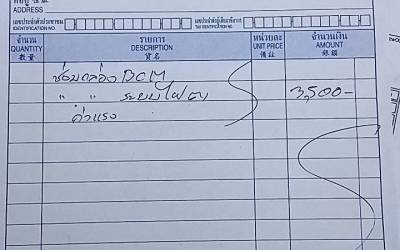 ADDRESS
เลขประจำตัวประชาชน
IDENTIFICATION NO.
เลขประจำตัวผู้เสียภาษีอากร
TAX IDENTIFICATION NO.
จำนวน
QUANTITY
數量
รายการ
DESCRIPTION
貨名
หน่วยละ
UNIT PRICE
備註
จำนวนเงิน
AMOUNT
銀額
ซ่อมกล่อง BCM
" " ระบบไฟ 3,500-
ค่าแรง